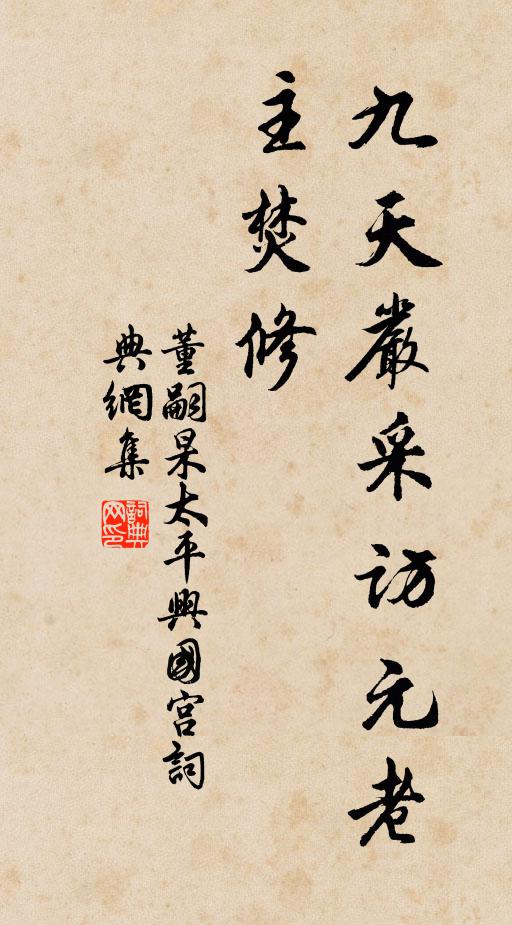 九天嚴采訪元老
主焚修
董嗣杲太平興國宮詞
典網集
詞典網印